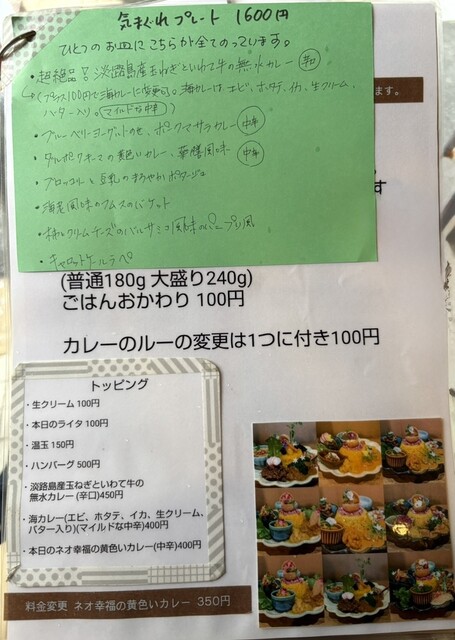 気まぐれプレート 1600円
ひとつのお皿にこちらが全てのっています。
・超絶品!淡路島産玉ねぎといわて牛の無水カレー 辛口
(プラス100円で海カレーに変更可。海カレーは エビ、ホタテ、イカ、生クリーム、
バター入り。マイルドな中辛)
・ブルーベリーヨーグルトのせ、ポークマサラカレー 中辛
黄色いカレー、薬膳風味 中辛
・ブロッコリーと豆乳のまろやかポタージュ
・海老風味のフムスのバケット
クリームチーズのバルサミコ風味
・キャロットラペ
す。
す
(普通180g 大盛り240g)
ごはんおかわり 100円
カレーのルーの変更は1つに付き100円
トッピング
・生クリーム 100円
・本日のライタ 100円
・温玉 150円
・ハンバーグ 500円
・淡路島産玉ねぎといわて牛の
無水カレー (辛口)450円
・海カレー(エビ、ホタテ、イカ、生クリーム、
バター入り)(マイルドな中辛)400円
・本日のネオ幸福の黄色いカレー(中辛)400円
料金変更 ネオ幸福の黄色いカレー 350円